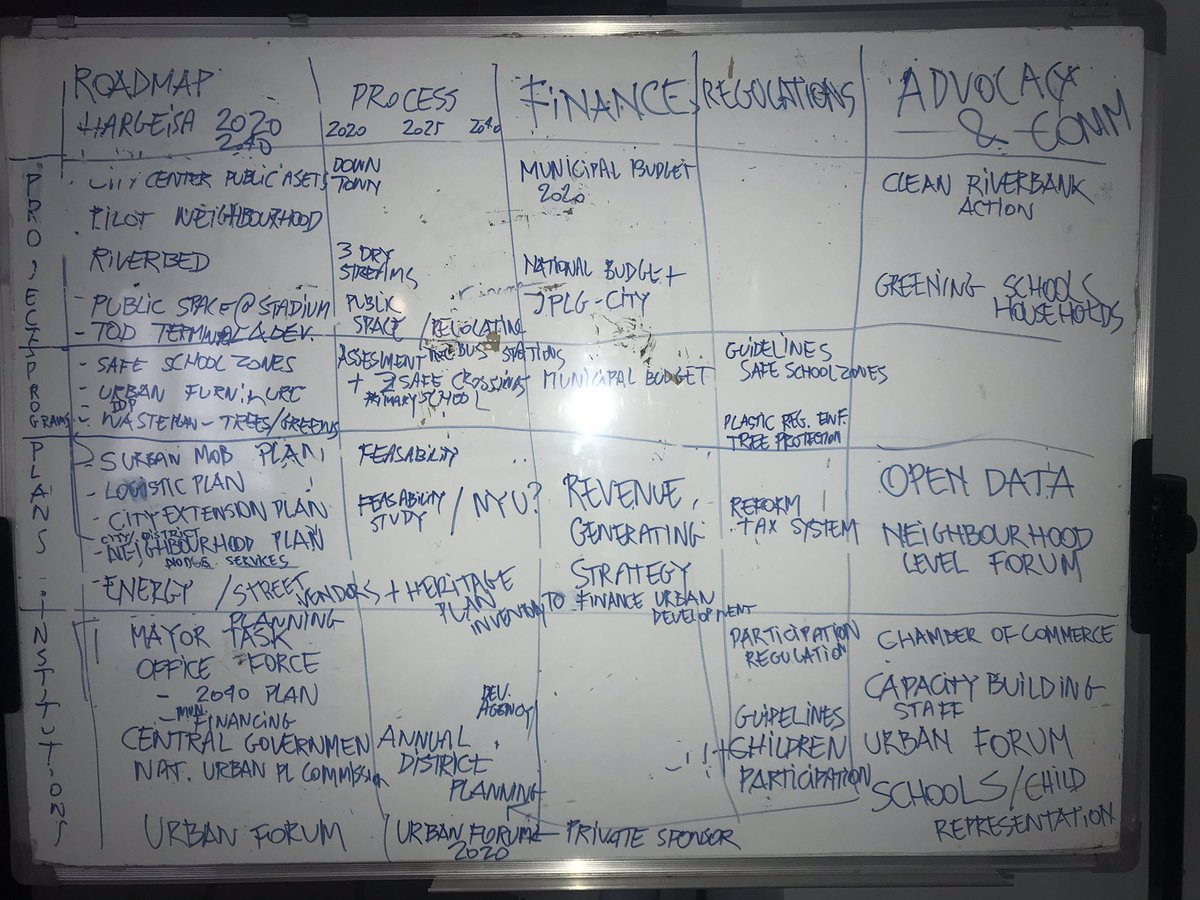 ROADMAP
HARGEISA 2020
2040
PROCESS
2020 2025 2040
FINANCE
REGULATIONS
ADVOCACY
& COMM
PROJECTS
CITY CENTER PUBLIC ASETS
PILOT NEIGHBOURHOOD
RIVERBED
- PUBLIC SPACE @ STADIUM
- TOD TERMINAL & DEV.
DOWN
TOWN
3 DRY
STREAMS
PUBLIC
SPACE / RELOCATING
BUS STATIONS
MUNICIPAL BUDGET
2020
NATIONAL BUDGET
JPLG-CITY
CLEAN RIVERBANK
ACTION
GREENING SCHOOLS
HOUSEHOLDS
PROGRAMS
- SAFE SCHOOL ZONES
- URBAN FURNITURE
- IDP
- WASTEPLAN - TREES/GREENS
ASSESMENT
+ 2 SAFE CROSSINGS
PRIMARY SCHOOL
MUNICIPAL BUDGET
GUIDELINES
SAFE SCHOOL ZONES
PLASTIC REG. ENF.
TREE PROTECTION
PLANS
- SURBAN MOB PLAN
- LOGISTIC PLAN
- CITY EXTENSION PLAN
CITY/DISTRICT
- NEIGHBOURHOOD PLAN
SERVICES
- ENERGY / STREET VENDORS + HERITAGE
PLANNING
PLAN
INVENTORY
FEASABILITY
FEASABILITY
STUDY / NYU?
REVENUE
GENERATING
STRATEGY
TO FINANCE URBAN
DEVELOPMENT
REFORM
TAX SYSTEM
OPEN DATA
NEIGHBOURHOOD
LEVEL FORUM
INSTITUTIONS
MAYOR TASK
OFFICE FORCE
- 2040 PLAN
- MUN.
FINANCING
CENTRAL GOVERNMEN
NAT. URBAN PL COMMISSION
URBAN FORUM
DEV.
AGENCY
ANNUAL
DISTRICT
PLANNING
/ URBAN FORUM ← PRIVATE SPONSOR
2020
PARTICIPATION
REGULATION
GUIDELINES
!! + CHILDREN
PARTICIPATION
CHAMBER OF COMMERCE
CAPACITY BUILDING
STAFF
URBAN FORUM
SCHOOLS/CHILD
REPRESENTATION